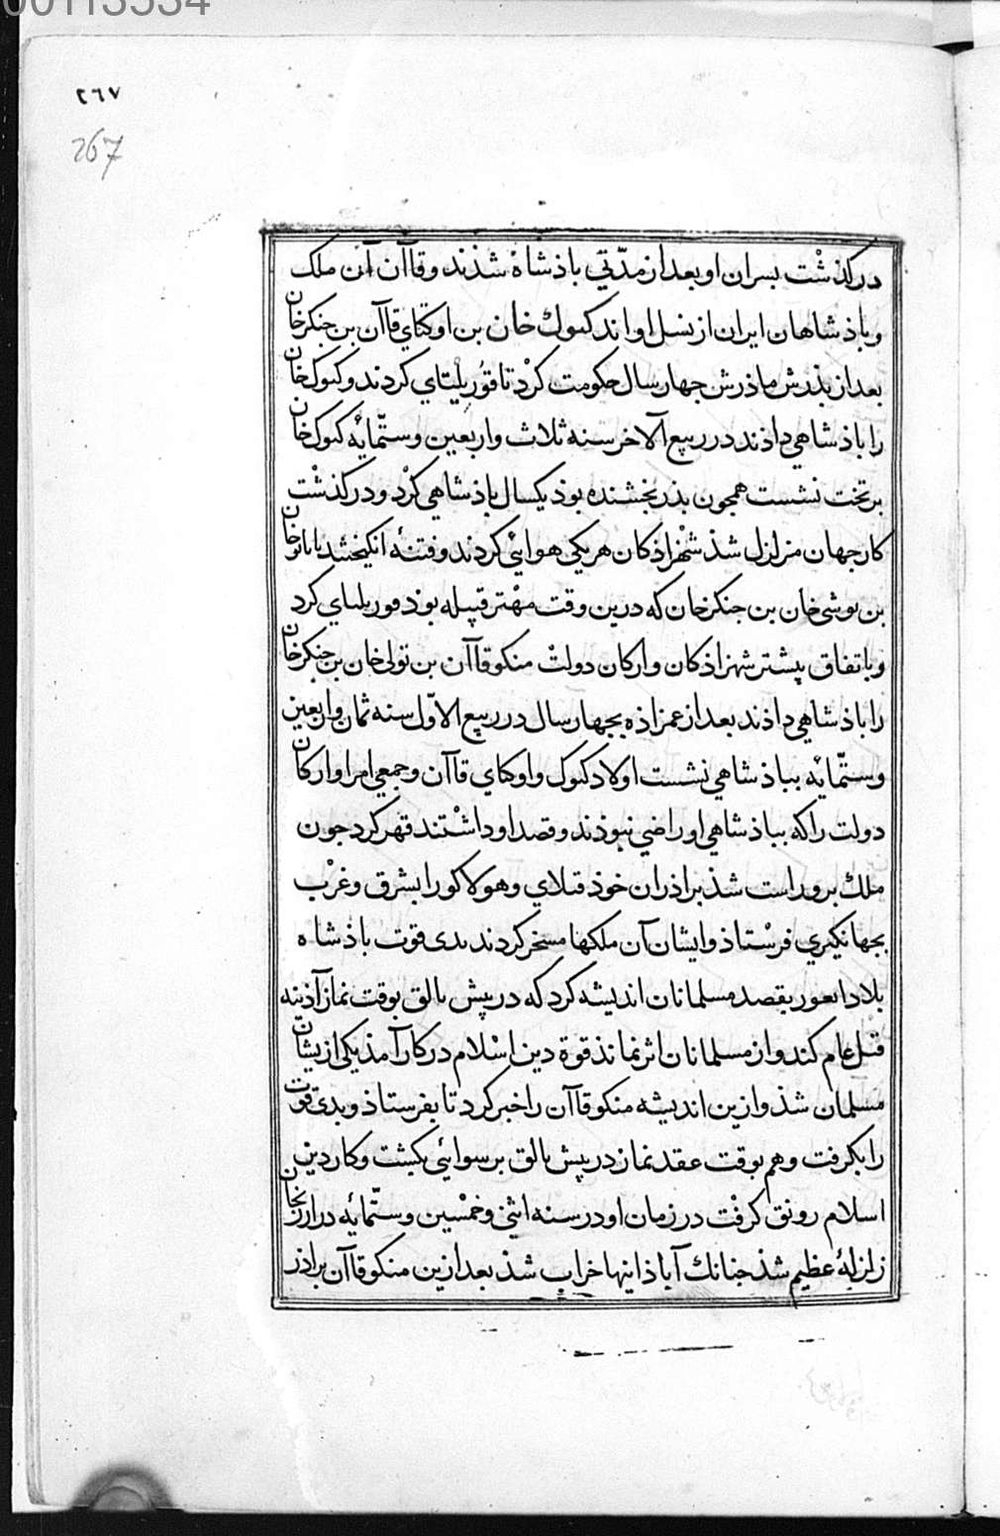 00113534
٢٦٧
267
درکذشت بسران او بعد از مدّتي باذشاه شذند و قاآن آن ملک
و باذشاهان ایران از نسل او اند کیوك خان بن اوکتاي قاآن بن جنکزخان
بعد از بذرش ماذرش جهار سال حکومت کرد تا قوریلیتاي کردند و کیوک خان
را باذشاهي داذند در ربیع الآخر سنه ثلاث و اربعین و ستّمایه کیوک خان
بر تخت نشست همجون بذر بخشنده بوذ یکسال باذشاهي کرد و درکذشت
کار جهان متزلزل شذ شهزاذکان هر یکي هوایي کردند و فتنهٔ انکیختند تا باتو خان
بن توشی خان بن جنکزخان که درین وقت مهتر قبیله بوذ قوریلتاي کرد
و باتفاق بیشتر شهزاذکان و ارکان دولت منکو قاآن بن تولی خان بن جنکزخان
را باذشاهي داذند بعد از عمزاذه بجهار سال در ربیع الاوّل سنه ثمان و اربعین
و ستّمایه بباذشاهي نشست اولاد کیوک و اوکتاي قاآن و جمعي امرا و ارکان
دولت را که بباذشاهي او راضي نبوذند و قصد او داشتند قهر کرد جون
ملك برو راست شذ براذران خوذ قبلاي و هولاکو را بشرق و غرب
بجهانکیري فرستاذ و ایشان آن ملکها مسخر کردند یدی قوت باذشاه
بلاد ایغور بقصد مسلمانان اندیشه کرد که در پیش بالق بوقت نماز آذینه
قتل عام کند و از مسلمانان اثر نماند قوة دین اسلام در کار آمذ یکی ازیشان
مسلمان شذ و ازین اندیشه منکو قاآن را خبر کرد تا بفرستاذ و یدی قوت
را بکرفت و هم بوقت عقد نماز در پیش بالق بر سوائی بکشت و کار دین
اسلام رونق کرفت در زمان او در سنه اثني و خمسین و ستّمایه در ارزنجان
زلزلهٔ عظیم شذ جنانك آباذانیها خراب شذ بعد ازین منکو قاآن براذر